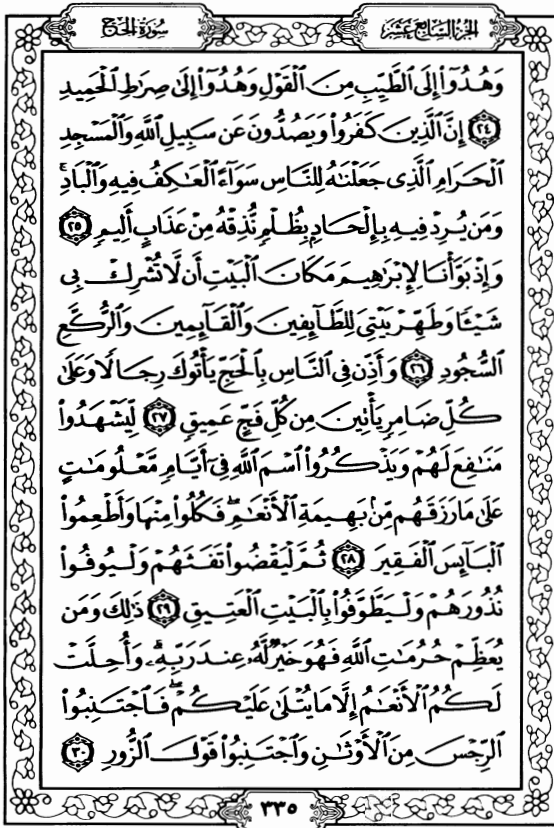 سُورَةُ الحَجِّ
الجُزْءُ السَّابِعَ عَشَرَ
وَهُدُوٓاْ إِلَى ٱلطَّيِّبِ مِنَ ٱلْقَوْلِ وَهُدُوٓاْ إِلَىٰ صِرَٰطِ ٱلْحَمِيدِ
﴿٢٤﴾ إِنَّ ٱلَّذِينَ كَفَرُواْ وَيَصُدُّونَ عَن سَبِيلِ ٱللَّهِ وَٱلْمَسْجِدِ
ٱلْحَرَامِ ٱلَّذِى جَعَلْنَٰهُ لِلنَّاسِ سَوَآءً ٱلْعَٰكِفُ فِيهِ وَٱلْبَادِ ۚ
وَمَن يُرِدْ فِيهِ بِإِلْحَادٍۭ بِظُلْمٍ نُّذِقْهُ مِنْ عَذَابٍ أَلِيمٍ ﴿٢٥﴾
وَإِذْ بَوَّأْنَا لِإِبْرَٰهِيمَ مَكَانَ ٱلْبَيْتِ أَن لَّا تُشْرِكْ بِى
شَيْـًٔا وَطَهِّرْ بَيْتِىَ لِلطَّآئِفِينَ وَٱلْقَآئِمِينَ وَٱلرُّكَّعِ
ٱلسُّجُودِ ﴿٢٦﴾ وَأَذِّن فِى ٱلنَّاسِ بِٱلْحَجِّ يَأْتُوكَ رِجَالًا وَعَلَىٰ
كُلِّ ضَامِرٍ يَأْتِينَ مِن كُلِّ فَجٍّ عَمِيقٍ ﴿٢٧﴾ لِّيَشْهَدُواْ
مَنَٰفِعَ لَهُمْ وَيَذْكُرُواْ ٱسْمَ ٱللَّهِ فِىٓ أَيَّامٍ مَّعْلُومَٰتٍ
عَلَىٰ مَا رَزَقَهُم مِّنۢ بَهِيمَةِ ٱلْأَنْعَٰمِ ۖ فَكُلُواْ مِنْهَا وَأَطْعِمُواْ
ٱلْبَآئِسَ ٱلْفَقِيرَ ﴿٢٨﴾ ثُمَّ لْيَقْضُواْ تَفَثَهُمْ وَلْيُوفُواْ
نُذُورَهُمْ وَلْيَطَّوَّفُواْ بِٱلْبَيْتِ ٱلْعَتِيقِ ﴿٢٩﴾ ذَٰلِكَ وَمَن
يُعَظِّمْ حُرُمَٰتِ ٱللَّهِ فَهُوَ خَيْرٌ لَّهُۥ عِندَ رَبِّهِۦ ۗ وَأُحِلَّتْ
لَكُمُ ٱلْأَنْعَٰمُ إِلَّا مَا يُتْلَىٰ عَلَيْكُمْ ۖ فَٱجْتَنِبُواْ
ٱلرِّجْسَ مِنَ ٱلْأَوْثَٰنِ وَٱجْتَنِبُواْ قَوْلَ ٱلزُّورِ ﴿٣٠﴾
٣٣٥